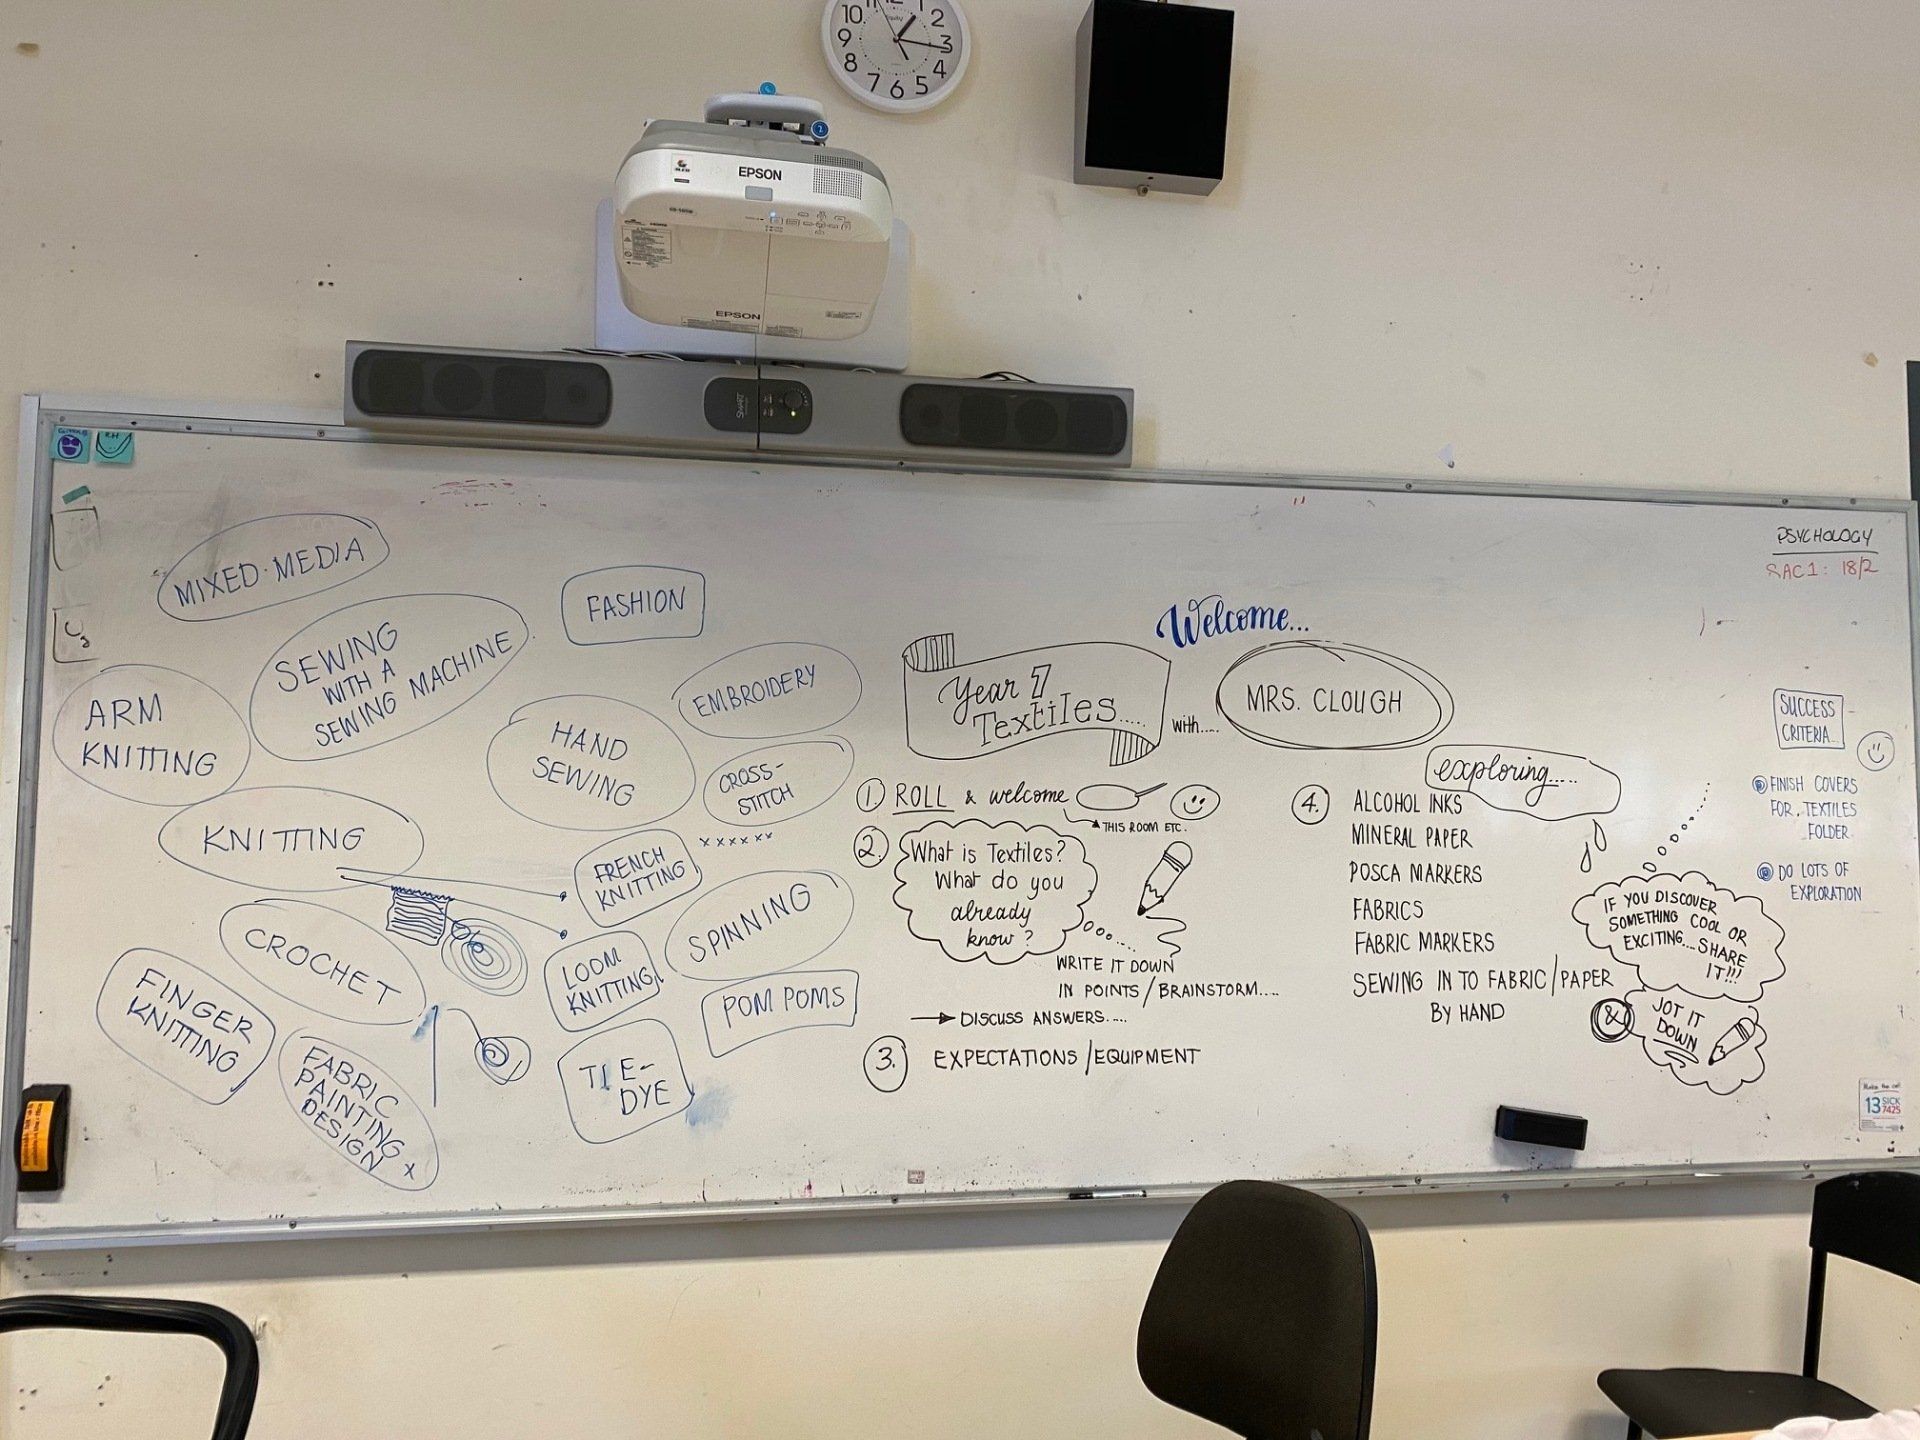 10
12
1
2
9
Equity
3
8
4
7
6
5
2
EPSON
EPSON
SMART
MIXED MEDIA
FASHION
SEWING
WITH A
SEWING MACHINE
EMBROIDERY
ARM
KNITTING
HAND
SEWING
CROSS-
STITCH
xxxxxx
KNITTING
FRENCH
KNITTING
SPINNING
CROCHET
LOOM
KNITTING
POM POMS
FINGER
KNITTING
FABRIC
PAINTING x
DESIGN
TIE-
DYE
Welcome...
Year 7
Textiles.....
with.....
MRS. CLOUGH
1 ROLL & welcome
THIS ROOM ETC.
2. What is Textiles?
What do you
already
know?
WRITE IT DOWN
IN POINTS/BRAINSTORM....
→ DISCUSS ANSWERS....
3. EXPECTATIONS/EQUIPMENT
exploring.....
4. ALCOHOL INKS
MINERAL PAPER
POSCA MARKERS
FABRICS
FABRIC MARKERS
SEWING IN TO FABRIC/PAPER
BY HAND
IF YOU DISCOVER
SOMETHING COOL OR
EXCITING....SHARE
IT!!!
&
JOT IT
DOWN
PSYCHOLOGY
SAC1: 18/2
SUCCESS
CRITERIA...
FINISH COVERS
FOR TEXTILES
FOLDER
DO LOTS OF
EXPLORATION
Make the call
13 SICK
7425